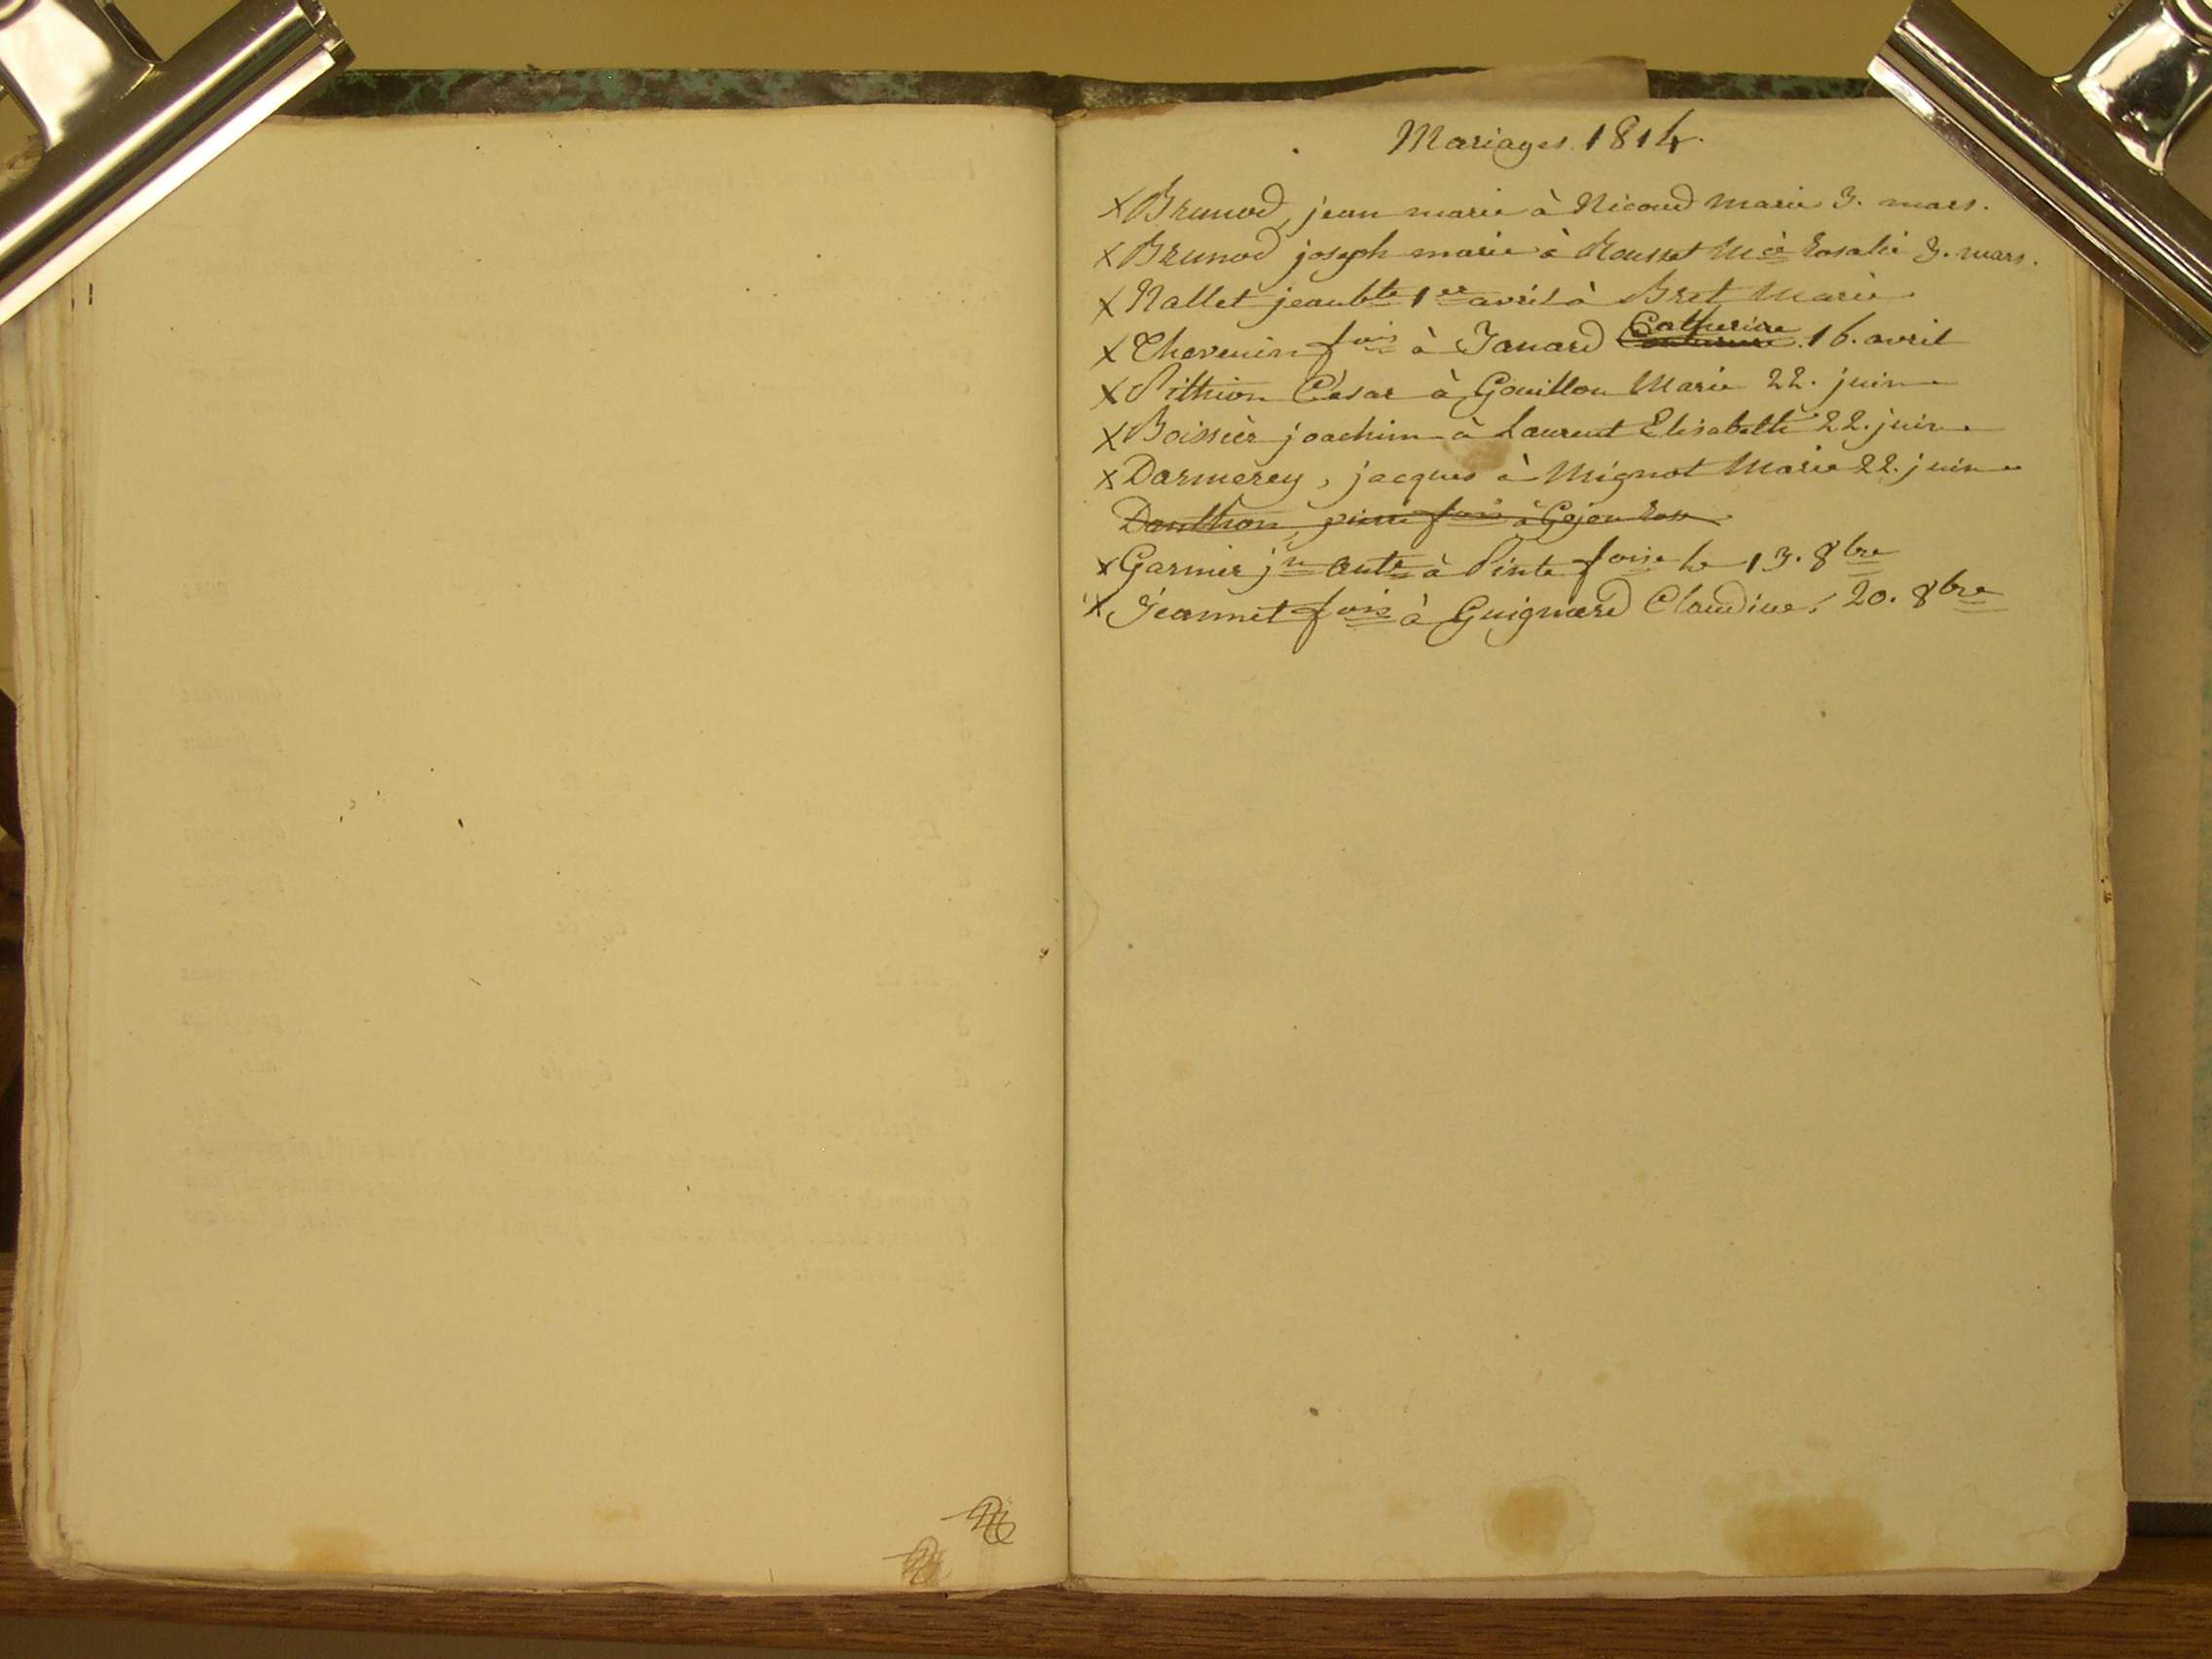 Mariages 1814.
x Brunod, jean marie à Nicoud Marie 3. mars.
x Brunod joseph marie à Rousset Mie Rosalie 3. mars.
x Nallet jean bte 1er avril à Bret Marie.
x Thevenin fois à Janard Catherine 16. avril
x Pithion César à Gouillon Marie 22. juin
x Boissier joachim à Laurent Elisabeth 22. juin.
x Darmerey, jacques à Mignot Marie 22. juin
Danthon, pierre fois à Gojon Rose
x Garnier jn ante à Pinte foise le 13. 8bre
x Jeannet fois à Guignard Claudine, 20. 8bre